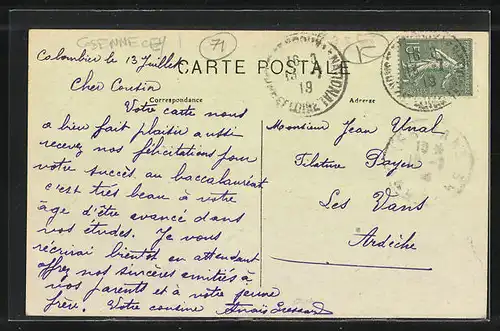 GSENNECEY
71
Colombier le 13 Juillet
CARTE POSTALE
Cher Cousin
Correspondance
Adresse
Votre carte nous
a bien fait plaisir aussi
recevez nos félicitations pour
votre succès au baccalauréat
c'est très beau à votre
âge d'être avancé dans
vos études. Je vous
écrirai bientôt en attendant
offrez nos sincères amitiés à
vos parents et à votre jeune
frère. Votre cousine Anaïs
Monsieur Jean Unal
Filature Payen
Les Vans
Ardèche
16-7
19